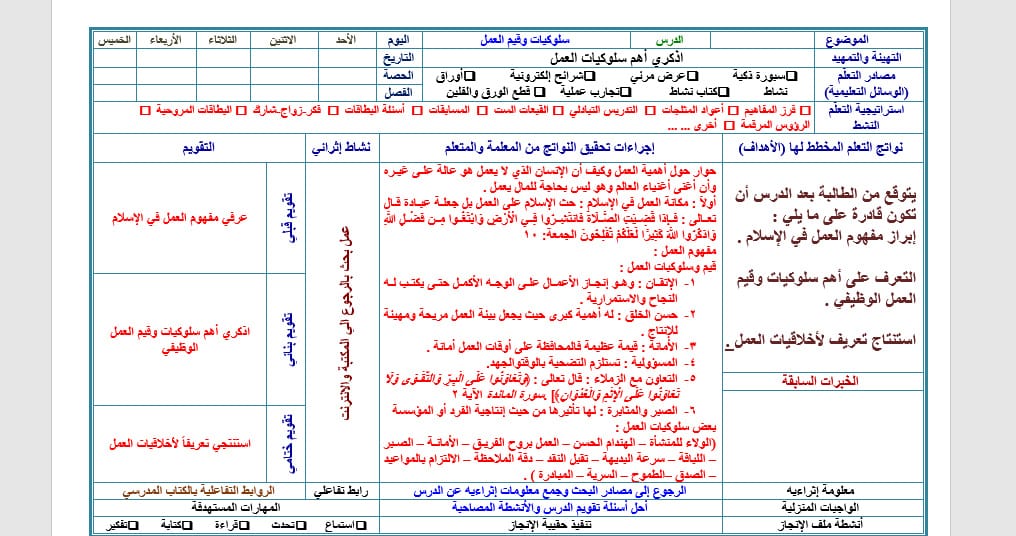 الموضوع الدرس سلوكيات وقيم العمل اليوم الأحد الاثنين الثلاثاء الأربعاء الخميس
التهيئة والتمهيد اذكري أهم سلوكيات العمل التاريخ
مصادر التعلم (الوسائل التعليمية) ❑سبورة ذكية ❑عرض مرئي ❑شرائح إلكترونية ❑أوراق الحصة
نشاط ❑كتاب نشاط ❑تجارب عملية ❑ قطع الورق والفلين الفصل
استراتيجية التعلم النشط ❑ فرز المفاهيم ❑ أعواد المثلجات ❑ التدريس التبادلي ❑ القبعات الست ❑ المسابقات ❑ أسئلة البطاقات ❑ فكر-زواج-شارك ❑ البطاقات المروحية ❑
الرؤوس المرقمة ❑ أخرى ... ...
نواتج التعلم المخطط لها (الأهداف) إجراءات تحقيق النواتج من المعلمة والمتعلم نشاط إثرائي التقويم
يتوقع من الطالبة بعد الدرس أن
تكون قادرة على ما يلي :
إبراز مفهوم العمل في الإسلام .
التعرف على أهم سلوكيات وقيم
العمل الوظيفي .
استنتاج تعريف لأخلاقيات العمل .
الخبرات السابقة
حوار حول أهمية العمل وكيف أن الإنسان الذي لا يعمل هو عالة على غيره
وأن أغنى أغنياء العالم وهو ليس بحاجة للمال يعمل .
أولاً : مكانة العمل في الإسلام : حث الإسلام على العمل بل جعلة عبادة قال
تعالى : فَإِذَا قُضِيَتِ الصَّلَاةُ فَانْتَشِرُوا فِي الْأَرْضِ وَابْتَغُوا مِنْ فَضْلِ اللَّهِ
وَاذْكُرُوا اللَّهَ كَثِيرًا لَعَلَّكُمْ تُفْلِحُونَ الجمعة: ١٠
مفهوم العمل :
قيم وسلوكيات العمل :
١- الإتقان : وهو إنجاز الأعمال على الوجه الأكمل حتى يكتب له
النجاح والاستمرارية .
٢- حسن الخلق : له أهمية كبرى حيث يجعل بيئة العمل مريحة ومهيئة
للإنتاج .
٣- الأمانة : قيمة عظيمة فالمحافظة على أوقات العمل أمانة .
٤- المسؤولية : تستلزم التضحية بالوقتوالجهد.
٥- التعاون مع الزملاء : قال تعالى : (وَتَعَاوَنُوا عَلَى الْبِرِّ وَالتَّقْوَى وَلَا
تَعَاوَنُوا عَلَى الْإِثْمِ وَالْعُدْوَانِ)[ .سورة المائدة الآية ٢
٦- الصبر والمثابرة : لها تأثيرها من حيث إنتاجية الفرد أو المؤسسة
بعض سلوكيات العمل :
(الولاء للمنشأة – الهندام الحسن – العمل بروح الفريق – الأمانة – الصبر
– اللباقة – سرعة البديهة – تقبل النقد – دقة الملاحظة – الالتزام بالمواعيد
– الصدق –الطموح – السرية – المبادرة ) .
عمل بحث بالرجوع الي المكتبة والانترنت
تقويم قبلي
عرفي مفهوم العمل في الإسلام
تقويم بنائي
اذكري أهم سلوكيات وقيم العمل
الوظيفي
تقويم ختامي
استنتجي تعريفاً لأخلاقيات العمل
معلومة إثراءيه الرجوع إلى مصادر البحث وجمع معلومات إثراءيه عن الدرس رابط تفاعلي الروابط التفاعلية بالكتاب المدرسي
الواجبات المنزلية أحل أسئلة تقويم الدرس والأنشطة المصاحبة المهارات المستهدفة
أنشطة ملف الإنجاز تنفيذ حقيبة الإنجاز ❑استماع ❑تحدث ❑قراءة ❑كتابة ❑تفكير